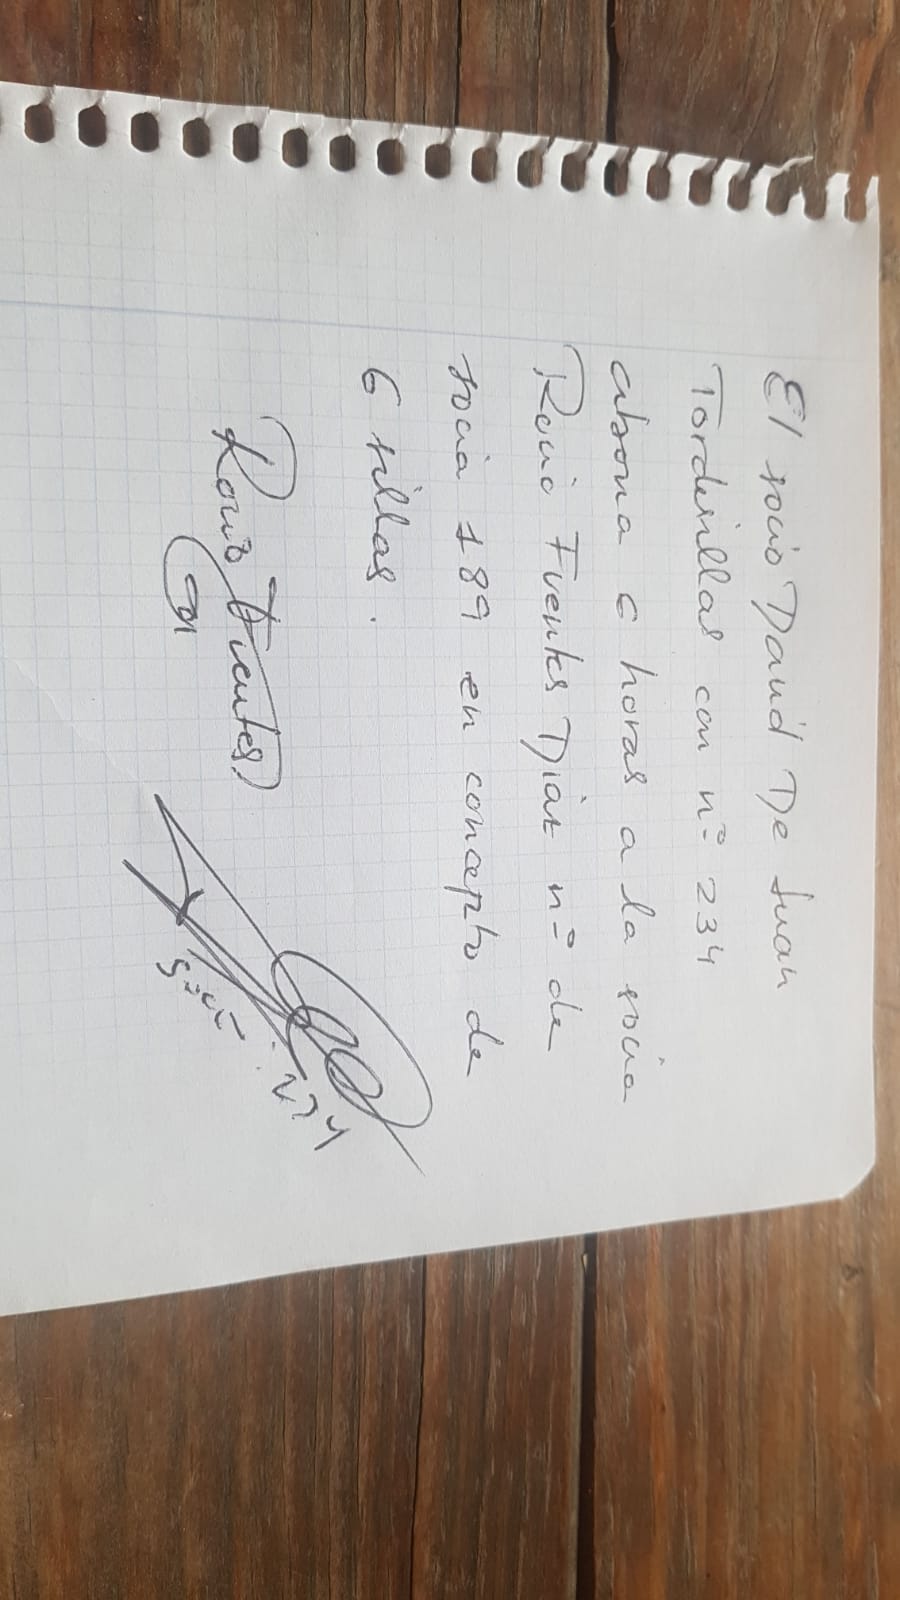 El socio David De Juan
Tordesillas con nº 234
abona 6 horas a la socia
Rocio Fuentes Diaz nº de
socia 189 en concepto de
6 sillas.
Rocio Fuentes